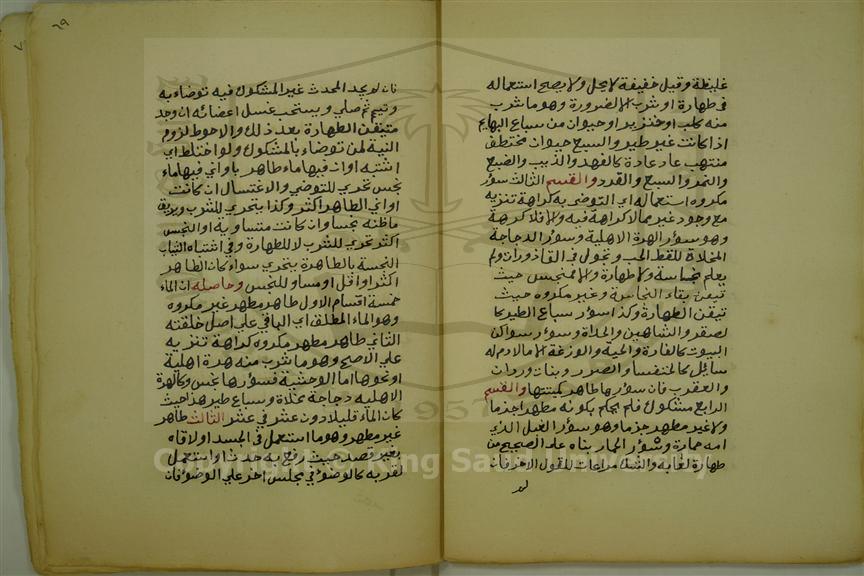 غليظة وقيل خفيفة لا يحل ولا يصح استعماله
في طهارة او شرب الا لضرورة وهو ما شرب
منه كلب او خنزير او حيوان من سباع البهايم
اذا كانت غير طير والسبع حيوان مختطف
منتهب عاد عادة كالفهد والذيب والضبع
والنمر والسبع والقرد والقسم الثالث سؤر
مكروه استعماله اي التوضي به كراهة تنزيه
مع وجود غير مما لا كراهة فيه والا فلا كرهة
وهو سؤر الهرة الاهلية وسؤر الدجاجة
المخلاة للقط الحب وتجول في القاذورات ولم
يعلم نجاسة ولا طهارة والا فنجس حيث
تيقن بقاء النجاسة وغير مكروه حيث
تيقن الطهارة وكذا سؤر سباع الطير كا
لصقر والشاهين والحداة وسؤر سواكن
البيوت كالفارة والحية والوزغة الا ما لا دم له
سائل كالخنفسا والصرصر وبنات وردان
والعقرب فان سؤرها طاهر كميتتها والقسم
الرابع مشكوك فلم يحكم بكونه مطهر اجزما
ولا غير مطهر جزما وهو سؤر البغل الذي
امه حمارة وسؤر الحمار بناه علي الصحيح من
طهارة لعابه والشك مراعات للقول الاخر فان
لم
٦٩
فان لم يجد المحدث غير المشكوك فيه توضاء به
وتيمم ثم صلي ويستحب غسل اعضائه ان وجد
متيقن الطهارة بعد ذلك والاحوط لزوم
النية لمن توضاء بالمشكوك ولو اختلط اي
اشتبه اوان فيها ماء طاهر باواني فيها ماء
نجس تحري للتوضي والاغتسال ان كانت
اواني الطاهر اكثر وكذا يتحري للشرب ويريق
ما ظنه نجسا وان كانت متساوية او النجس
اكثر تحري للشرب لا للطهارة وفي اشتباه الثياب
النجسة بالطاهرة يتحري سواء كان الطاهر
اكثر او اقل او مساو للنجس وحاصله ان الماء
خمسة اقسام الاول طاهر مطهر غير مكروه
وهو الماء المطلق اي الباقي علي اصل خلقته
الثاني طاهر مطهر مكروه كراهة تنزيه
علي الاصح وهو ما شرب منه هرة اهلية
او نحوها اما الوحشية فسؤرها نجس وكالهرة
الاهليه دجاجة مخلاة وسباع طير هذا حيث
كان الماء قليلا دون عشر في عشر الثالث طاهر
غير مطهر وهو ما استعمل في الجسد او لاقاه
بغير قصد حيث رفع به حدث او استعمل
لقربه كالوضؤ في مجلس اخر علي الوضؤ فان
Copyright © King Saud University
1957